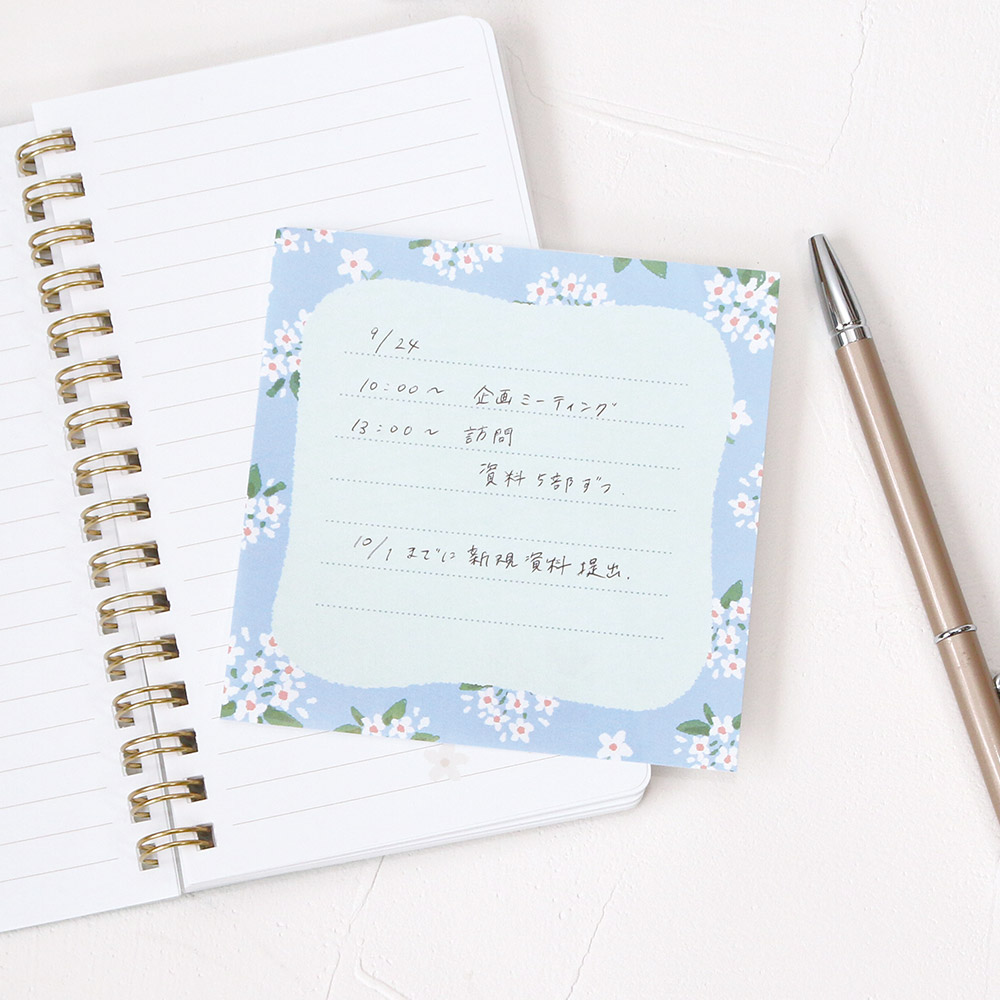 9/24
10:00～ 企画ミーティング
13:00～ 訪問
資料5部ずつ.
10/1までに新規資料提出.